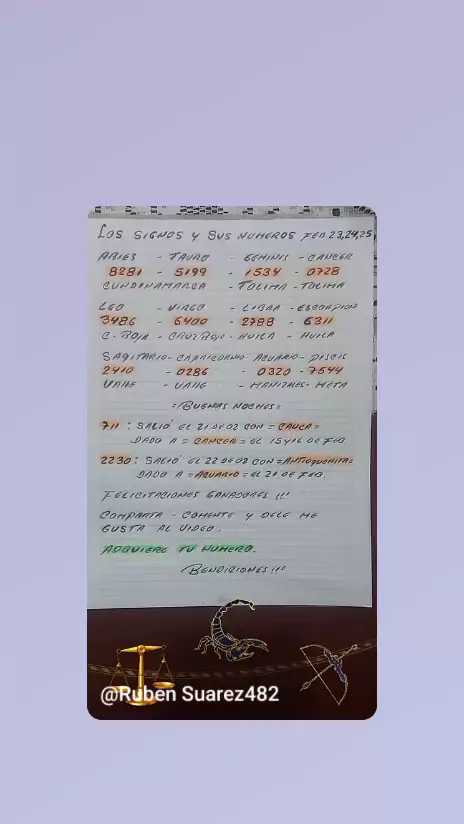 LOS SIGNOS Y SUS NUMEROS FEB 23,24,25
ARIES - TAURO - GEMINIS - CANCER
8281 - 5199 - 1534 - 0728
CUNDINAMARCA - TOLIMA - TOLIMA
LEO - VIRGO - LIBRA - ESCORPION
3486 - 6400 - 2788 - 6311
C. ROJA - CRUZ ROJA - HUILA - HUILA
SAGITARIO - CAPRICORNIO - ACUARIO - PISCIS
2410 - 0286 - 0320 - 7544
VALLE - VALLE - MANIZALES - META
=BUENAS NOCHES=
711 : SALIO EL 21 DE 02 CON = CAUCA=
DADO A = CANCER = EL 15 Y 16 DE FEB
2230 : SALIO EL 22 DE 02 CON = ANTIOQUEÑITA=
DADO A = ACUARIO = EL 21 DE FEB.
FELICITACIONES GANADORES !!!
COMPARTA - COMENTE Y DELE ME
GUSTA AL VIDEO.
ADQUIERE TU NUMERO.
BENDICIONES !!!
@Ruben Suarez482